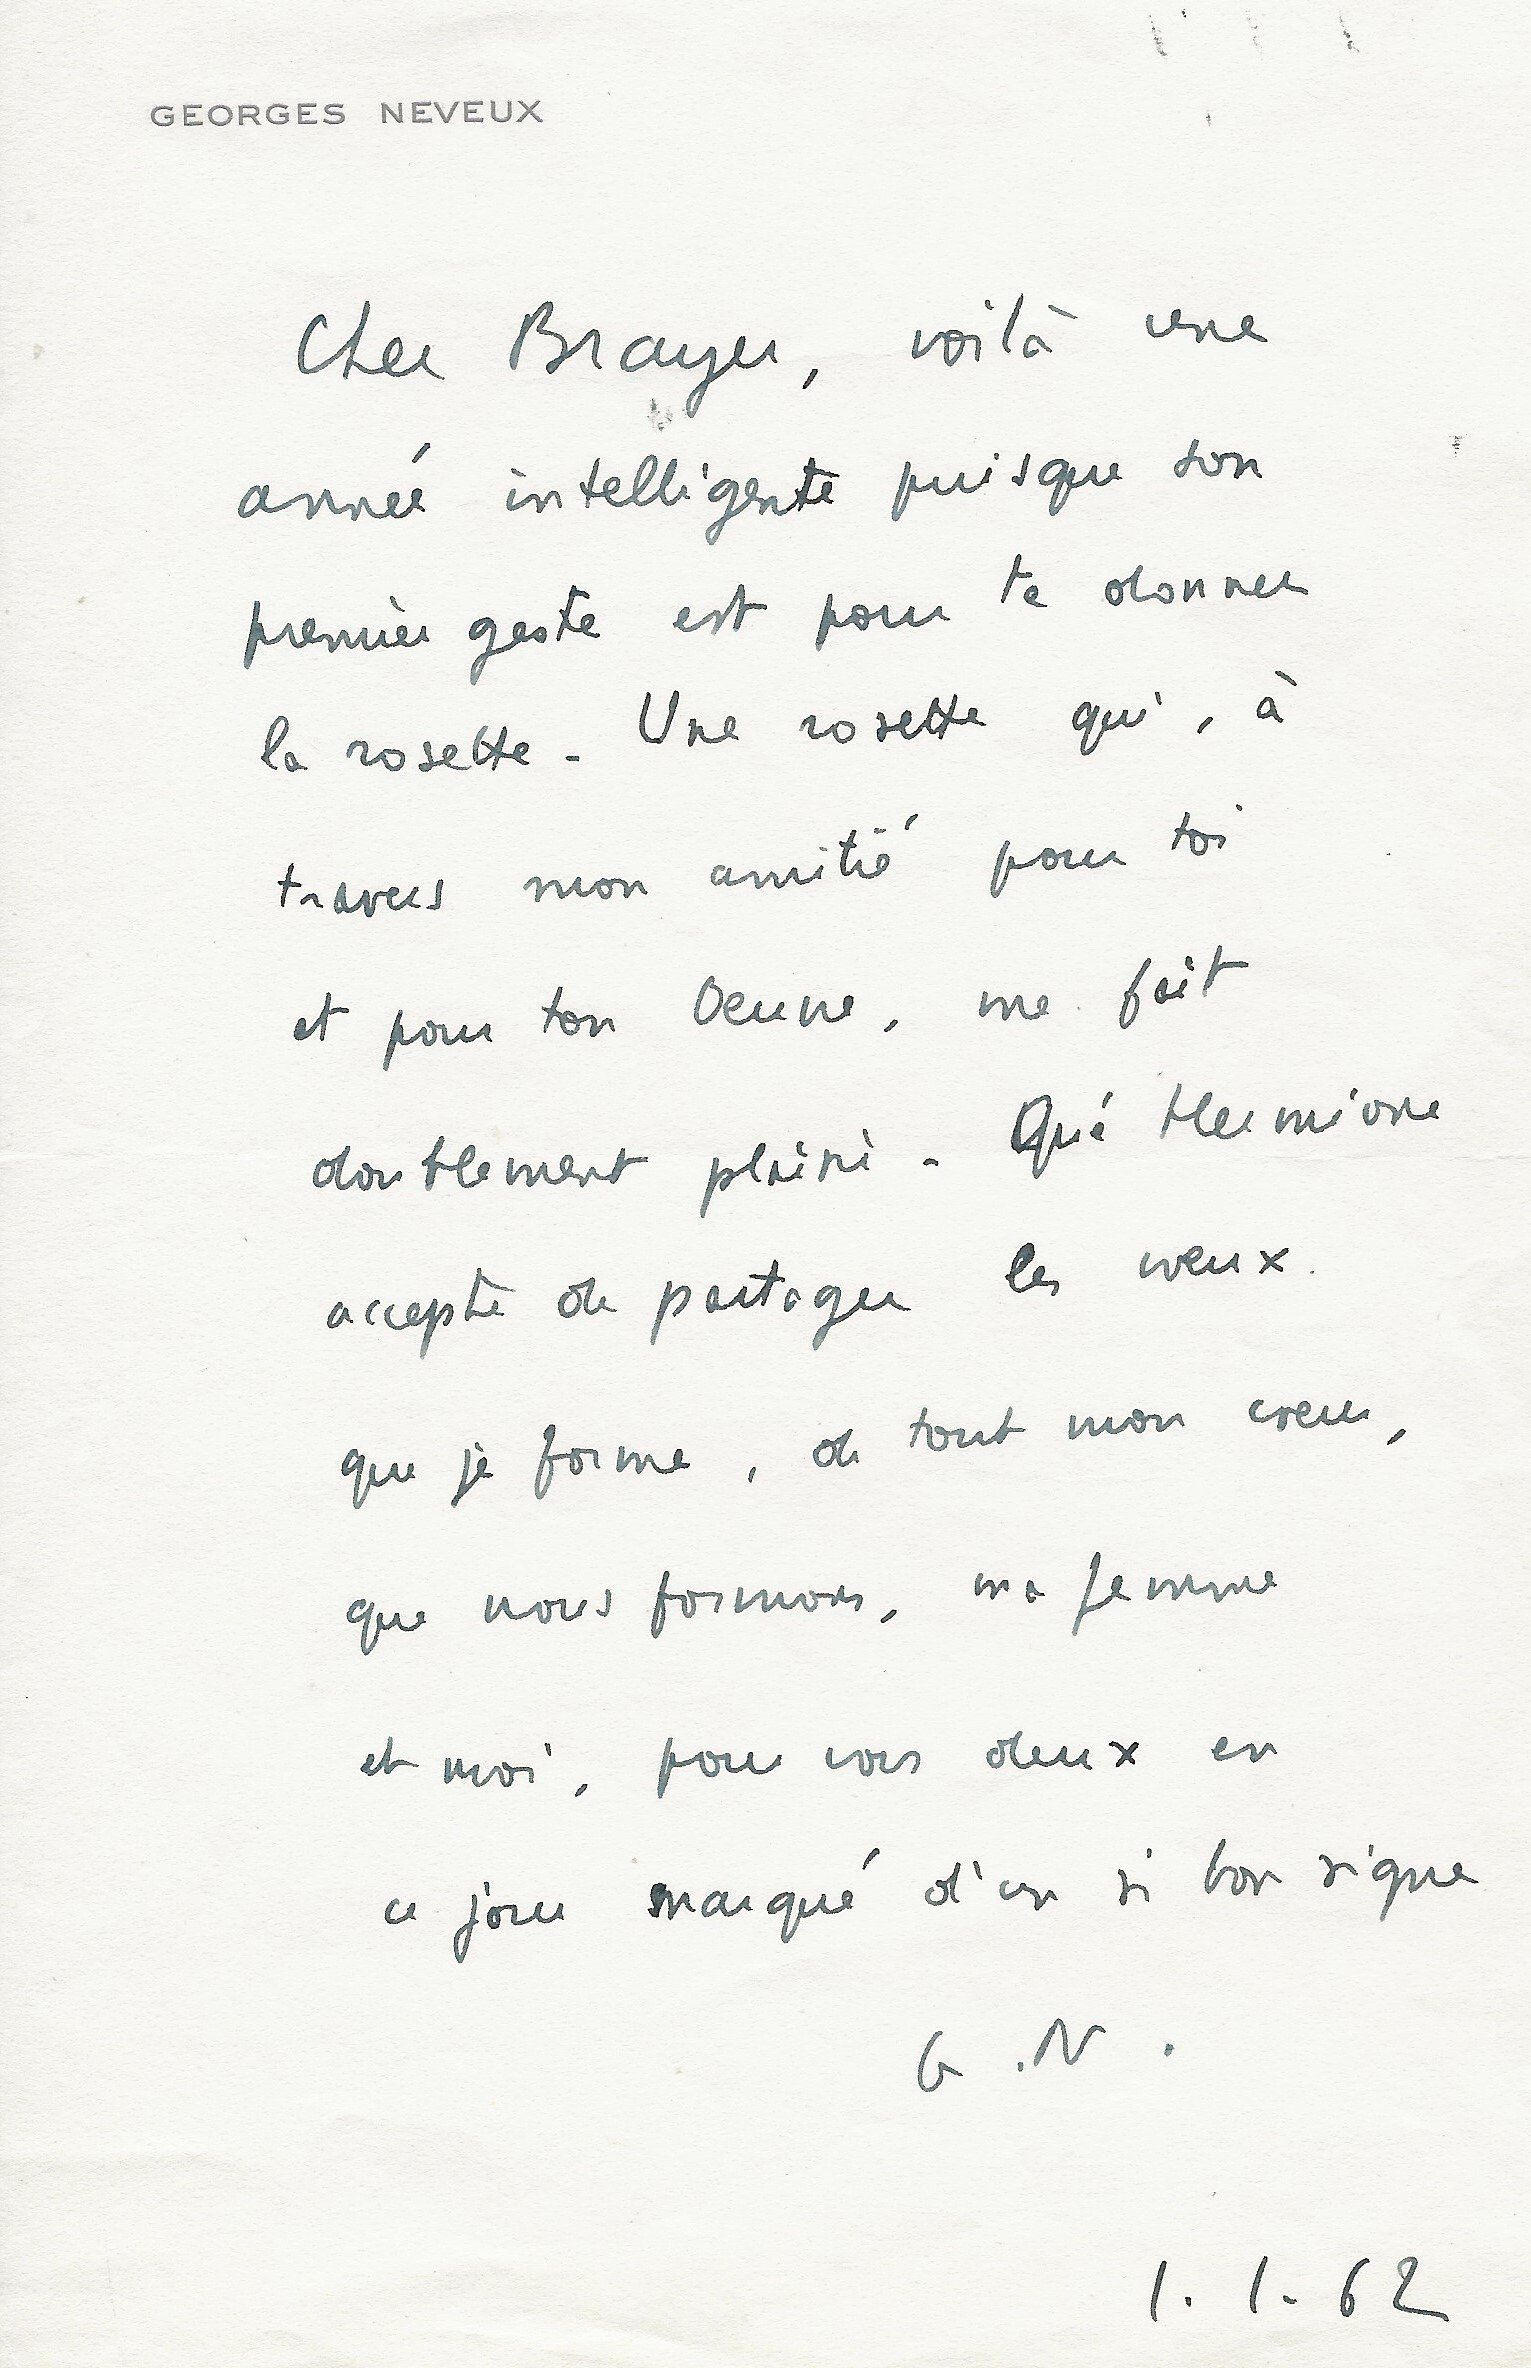 GEORGES NEVEUX
Cher Brayer, voilà une
année intelligente puisque son
premier geste est pour te donner
la rosette - Une rosette qui, à
travers mon amitié pour toi
et pour ton Oeuvre, me fait
doublement plaisir - Que Hermione
accepte de partager les voeux
que je forme, de tout mon coeur,
que nous formons, ma femme
et moi, pour vous deux en
ce jour marqué d'un si bon signe
G.N.
1.1.62